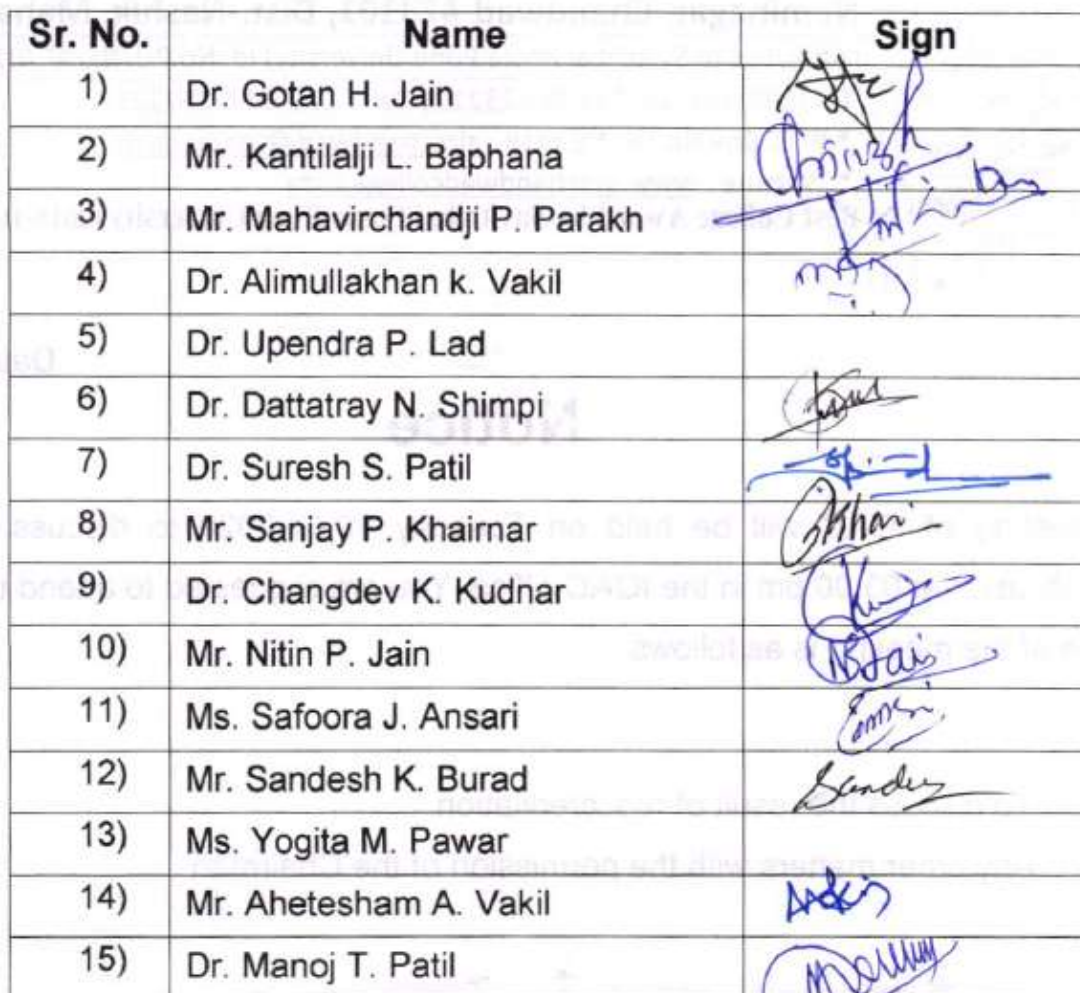 Sr. No. Name Sign
1) Dr. Gotan H. Jain
2) Mr. Kantilalji L. Baphana
3) Mr. Mahavirchandji P. Parakh
4) Dr. Alimullakhan k. Vakil
5) Dr. Upendra P. Lad
6) Dr. Dattatray N. Shimpi
7) Dr. Suresh S. Patil
8) Mr. Sanjay P. Khairnar
9) Dr. Changdev K. Kudhar
10) Mr. Nitin P. Jain
11) Ms. Safoora J. Ansari
12) Mr. Sandesh K. Burad
13) Ms. Yogita M. Pawar
14) Mr. Ahetesham A. Vakil
15) Dr. Manoj T. Patil